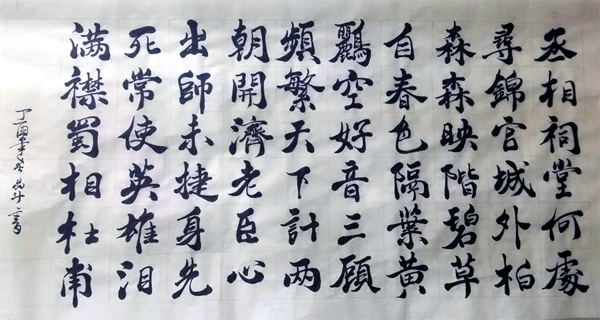 丞相祠堂何處
尋錦官城外柏
森森映階碧草
自春色隔葉黃
鸝空好音三顧
頻繁天下計两
朝開濟老臣心
出師未捷身先
死常使英雄泪
满襟蜀相杜甫
丁酉年冬